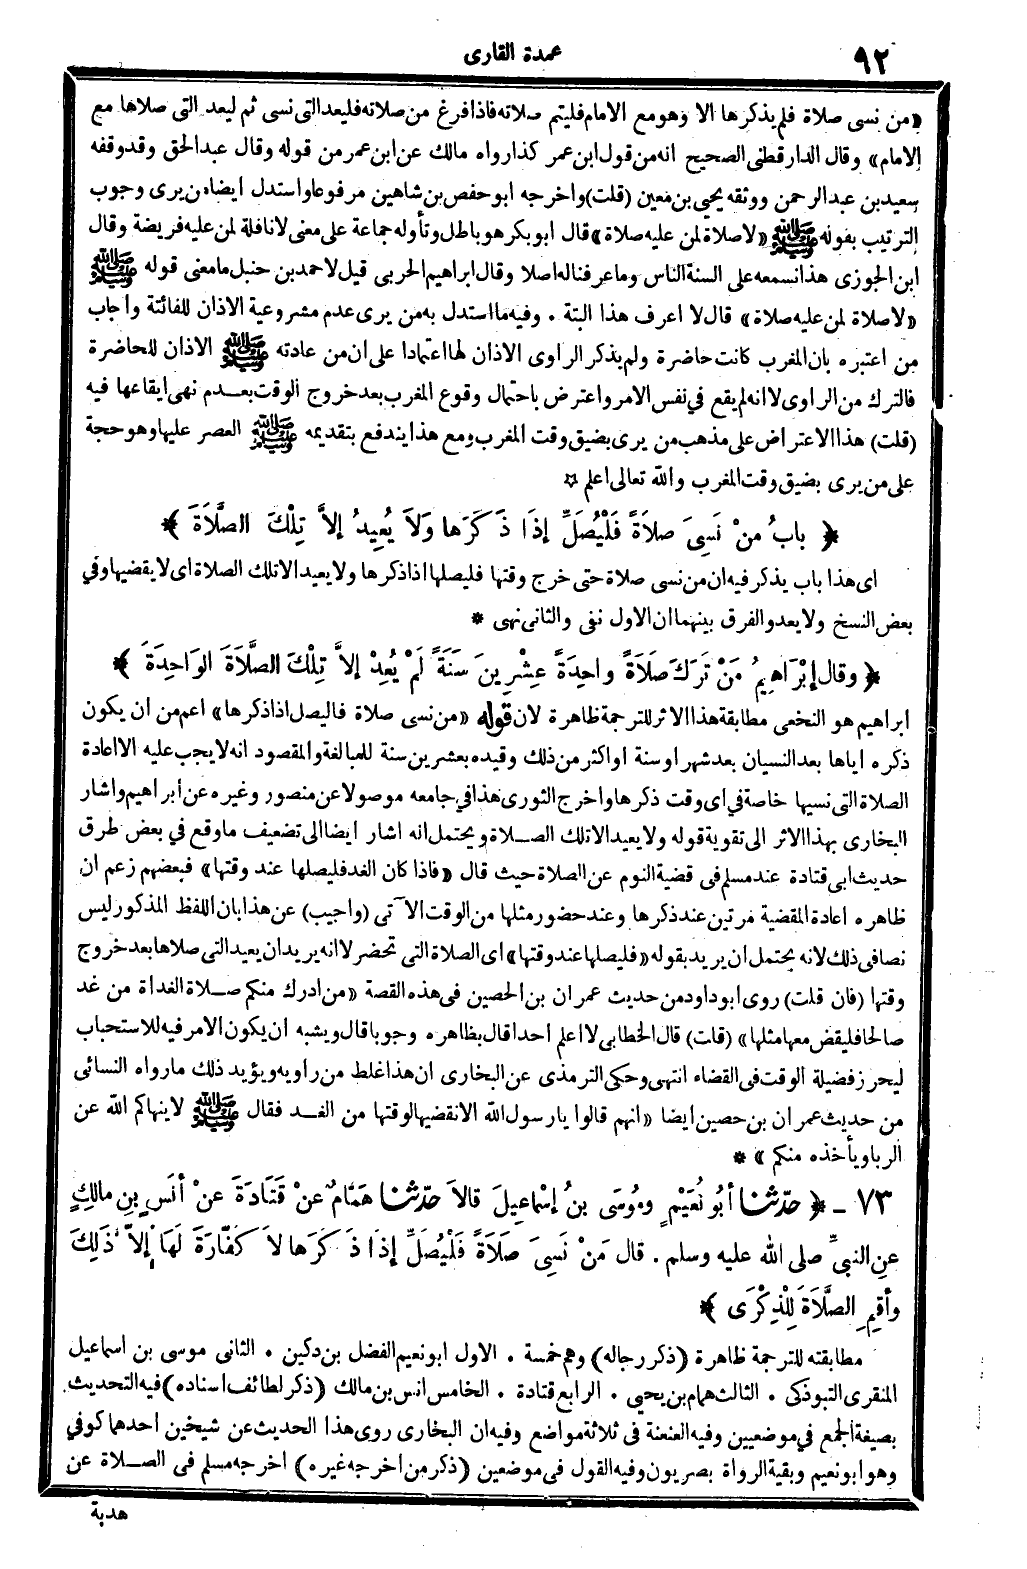 ٩٢
عمدة القارى
«من نسى صلاة فلم يذكرها الا وهو مع الامام فليتم صلاته فاذا فرغ من صلاته فليعد التى نسى ثم ليعد التى صلاها مع
الامام» وقال الدارقطنى الصحيح انه من قول ابن عمر كذا رواه مالك عن ابن عمر من قوله وقال عبد الحق وقد وقفه
سعيد بن عبد الرحمن ووثقه يحيى بن معين (قلت) واخرجه ابو حفص بن شاهين مرفوعا واستدل ايضا من يرى وجوب
الترتيب بقوله ﷺ «لا صلاة لمن عليه صلاة» قال ابو بكر هو باطل وتأوله جماعة على معنى لا نافلة لمن عليه فريضة وقال
ابن الجوزى هذا نسمعه على السنة الناس وما عرفنا له اصلا وقال ابراهيم الحربى قيل لاحمد بن حنبل ما معنى قوله ﷺ
«لا صلاة لمن عليه صلاة» قال لا اعرف هذا البتة . وفيه ما استدل به من يرى عدم مشروعية الاذان للفائتة واجاب
من اعتبره بان المغرب كانت حاضرة ولم يذكر الراوى الاذان لها اعتمادا على ان من عادته ﷺ الاذان للحاضرة
فالترك من الراوى لا انه لم يقع فى نفس الامر واعترض باحتمال وقوع المغرب بعد خروج الوقت بعدم نهى ايقاعها فيه
(قلت) هذا الاعتراض على مذهب من يرى بضيق وقت المغرب ومع هذا يندفع بتقديمه ﷺ العصر عليها وهو حجة
على من يرى بضيق وقت المغرب والله تعالى اعلم ☆
﴿ بابُ مَنْ نَسِىَ صَلاَةً فَلْيُصَلِّ إذَا ذَكَرَها وَلاَ يُعِيدُ إلاَّ تِلْكَ الصَّلاَةَ ﴾
اى هذا باب يذكر فيه ان من نسى صلاة حتى خرج وقتها فليصلها اذا ذكرها ولا يعيد الا تلك الصلاة اى لا يقضيها وفي
بعض النسخ ولا يعد والفرق بينهما ان الاول نفى والثانى نهى *
﴿ وقال إبْرَاهِيمُ مَنْ تَرَكَ صَلاَةً واحِدَةً عِشْرِينَ سَنَةً لَمْ يُعِدْ إلاَّ تِلْكَ الصَّلاَةَ الوَاحِدَةَ ﴾
ابراهيم هو النخعى مطابقة هذا الاثر للترجمة ظاهرة لان قوله «من نسى صلاة فاليصل اذا ذكرها» اعم من ان يكون
ذكره اياها بعد النسيان بعد شهر او سنة او اكثر من ذلك وقيده بعشرين سنة للمبالغة والمقصود انه لا يجب عليه الا اعادة
الصلاة التى نسيها خاصة فى اى وقت ذكرها واخرج الثورى هذا فى جامعه موصولا عن منصور وغيره عن ابراهيم واشار
البخارى بهذا الاثر الى تقوية قوله ولا يعيد الا تلك الصلاة ويحتمل انه اشار ايضا الى تضعيف ما وقع في بعض طرق
حديث ابى قتادة عند مسلم فى قضية النوم عن الصلاة حيث قال «فاذا كان الغد فليصلها عند وقتها» فبعضهم زعم ان
ظاهره اعادة المقضية مرتين عند ذكرها وعند حضور مثلها من الوقت الآتى (واجيب) عن هذا بان اللفظ المذكور ليس
نصا فى ذلك لانه يحتمل ان يريد بقوله «فليصلها عند وقتها» اى الصلاة التى تحضر لا انه يريد ان يعيد التى صلاها بعد خروج
وقتها (فان قلت) روى ابو داود من حديث عمران بن الحصين فى هذه القصة «من ادرك منكم صلاة الغداة من غد
صالحا فليقض معها مثلها» (قلت) قال الخطابى لا اعلم احدا قال بظاهره وجوبا قال ويشبه ان يكون الامر فيه للاستحباب
ليحرز فضيلة الوقت فى القضاء انتهى وحكى الترمذى عن البخارى ان هذا غلط من راويه ويؤيد ذلك ما رواه النسائى
من حديث عمران بن حصين ايضا «انهم قالوا يا رسول الله الا نقضيها لوقتها من الغد فقال ﷺ لا ينهاكم الله عن
الربا ويأخذه منكم» *
٧٣ - ﴿ حدّثنا أبُو نُعَيْمٍ ومُوسَى بنُ إسْماعِيلَ قالاَ حدّثنا هَمَّامٌ عنْ قَتَادَةَ عنْ أنَسِ بنِ مالِكٍ
عنِ النبىِّ صلى الله عليه وسلم . قال مَنْ نَسِىَ صَلاَةً فَلْيُصَلِّ إذَا ذَكَرَها لاَ كَفَّارَةَ لَهَا إلاَّ ذَلِكَ
وأقِمِ الصَّلاَةَ لِلْذِكْرَى ﴾
مطابقته للترجمة ظاهرة (ذكر رجاله) وهم خمسة . الاول ابو نعيم الفضل بن دكين . الثانى موسى بن اسماعيل
المنقرى التبوذكى . الثالث همام بن يحيى . الرابع قتادة . الخامس انس بن مالك (ذكر لطائف اسناده) فيه التحديث
بصيغة الجمع في موضعيين وفيه العنعنة فى ثلاثة مواضع وفيه ان البخارى روى هذا الحديث عن شيخين احدهما كوفي
وهو ابو نعيم وبقية الرواة بصريون وفيه القول فى موضعين (ذكر من اخرجه غيره) اخرجه مسلم فى الصلاة عن
هدبة